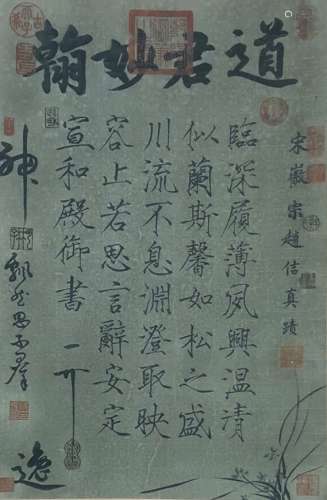 道君妙翰
宋徽宗趙佶真蹟
臨深履薄夙興温凊
似蘭斯馨如松之盛
川流不息淵澄取映
容止若思言辭安定
宣和殿御書
神
飄然思不群
逸